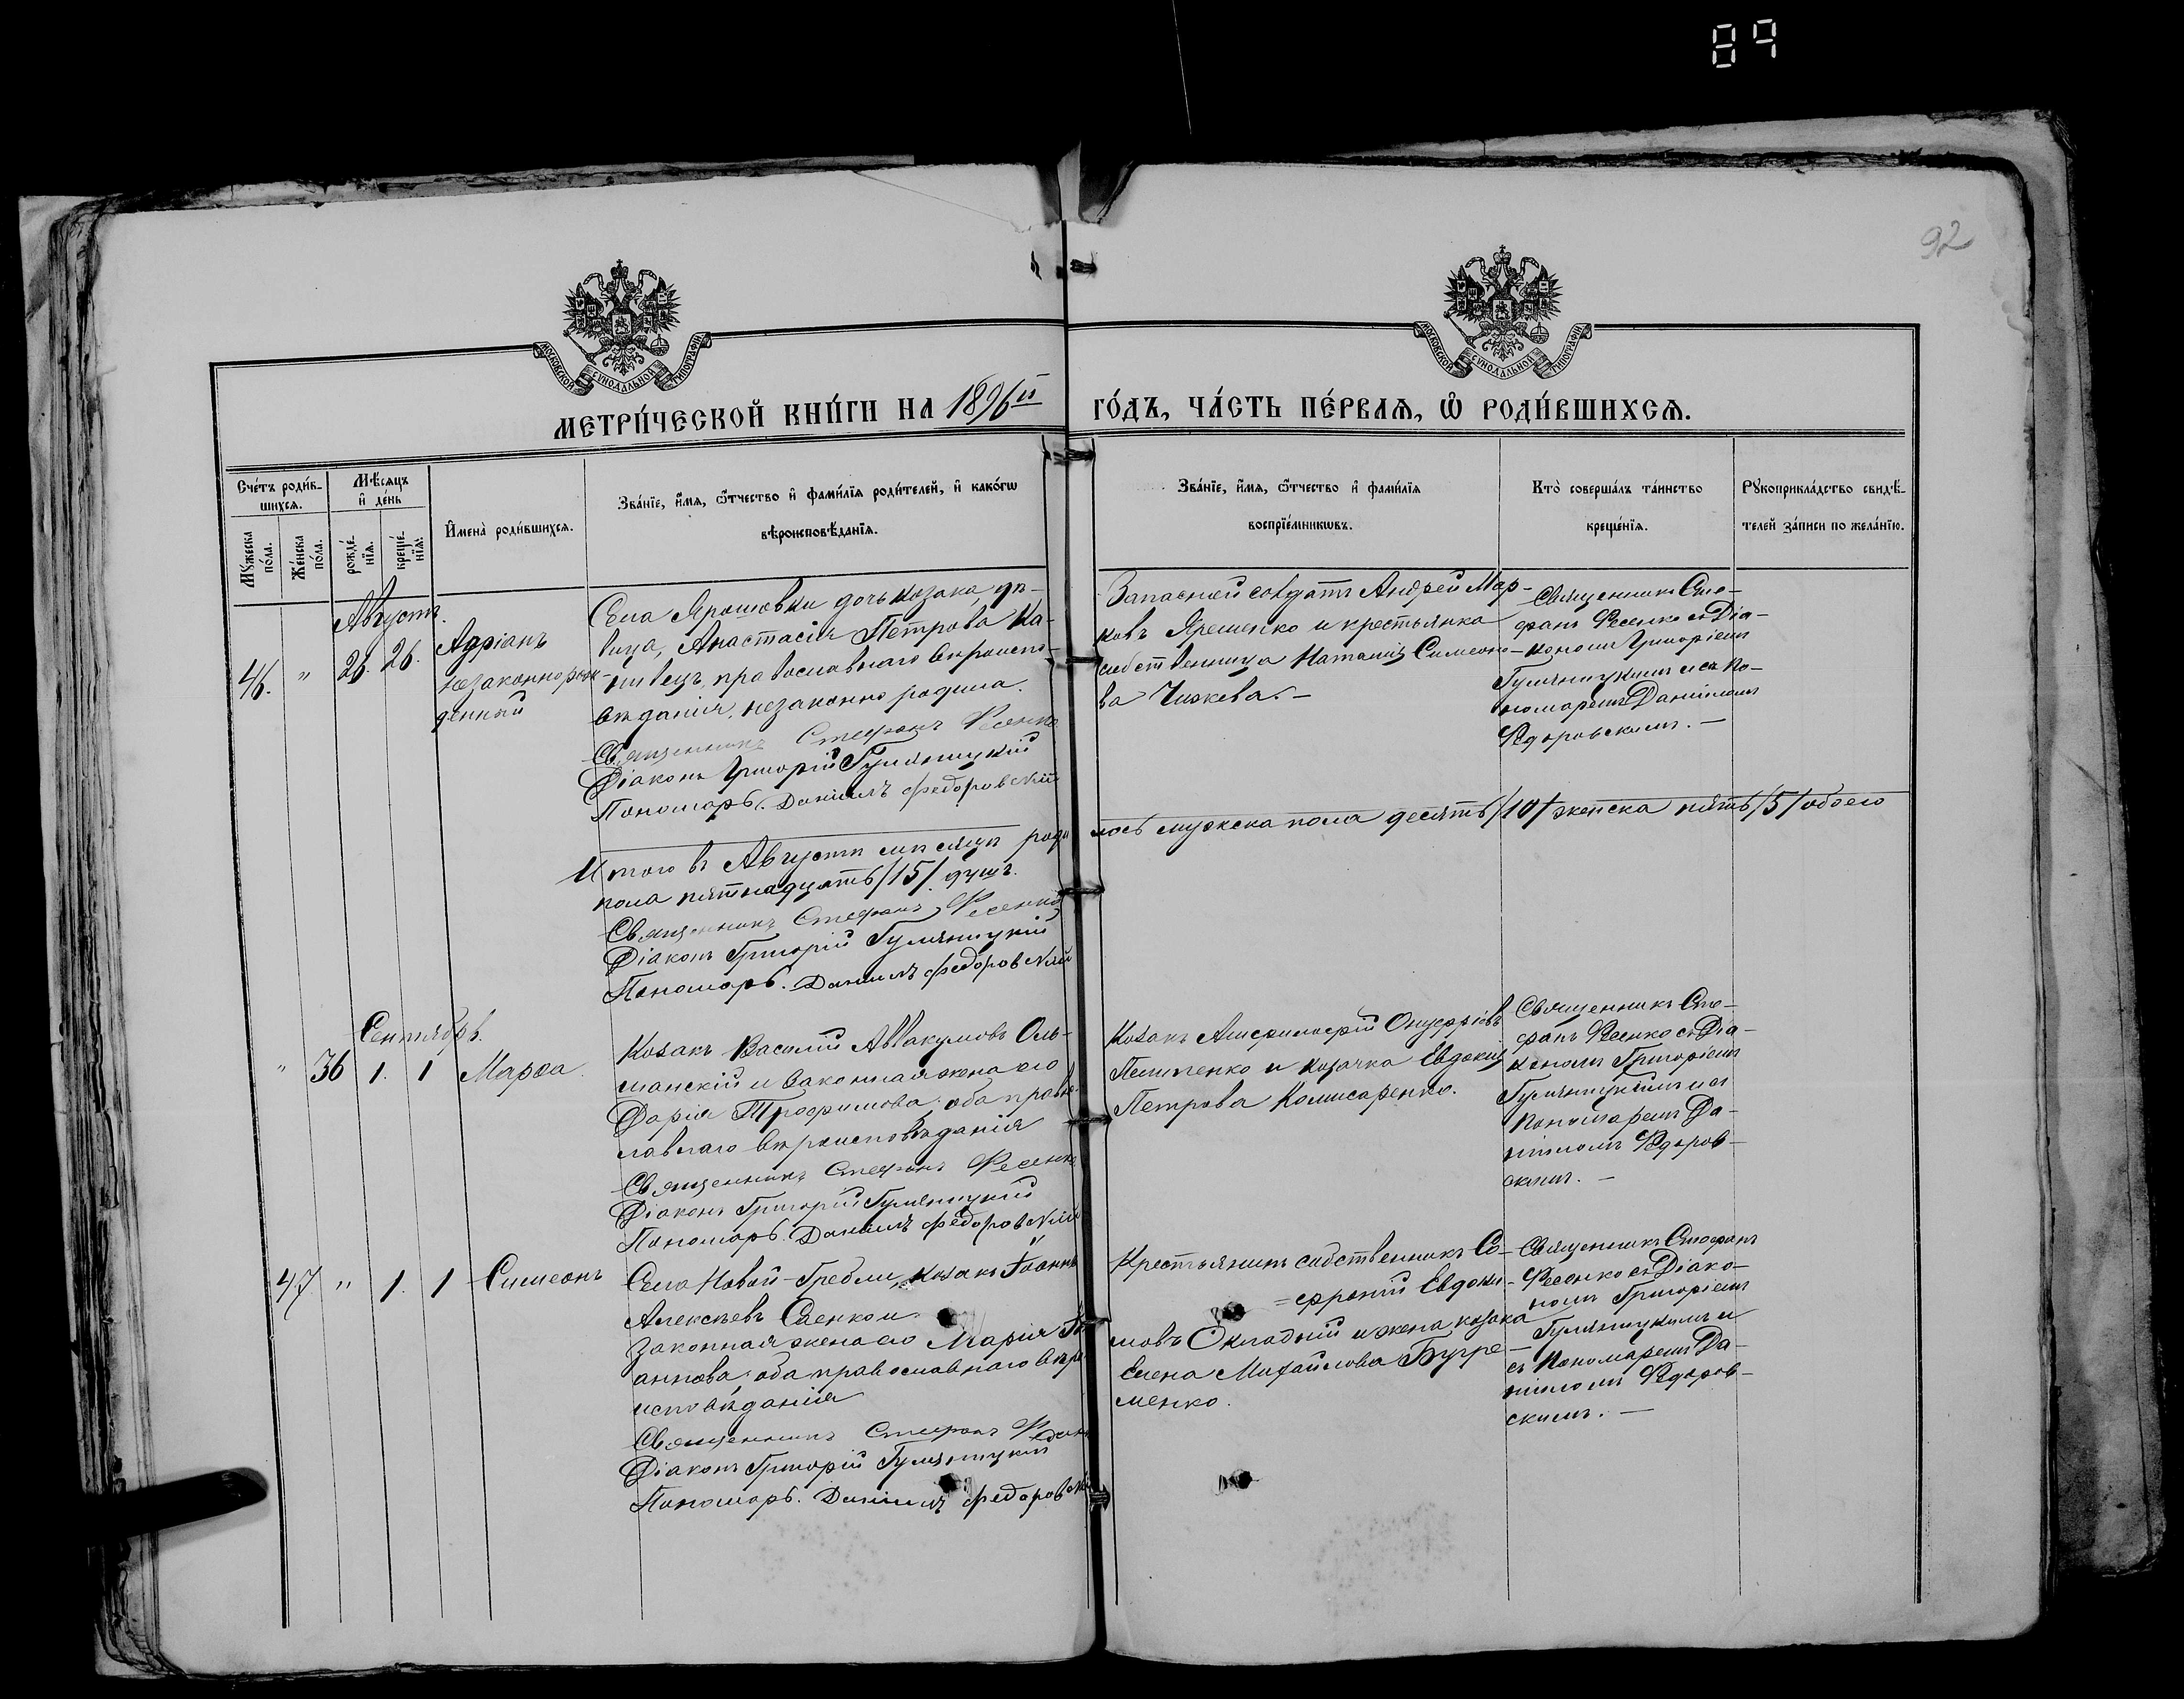 89
92
МОСКОВСКОЙ СѴНОДАЛЬНОЙ ТИПОГРАФІИ
МОСКОВСКОЙ СѴНОДАЛЬНОЙ ТИПОГРАФІИ
МЕТРИ́ЧЕСКОЙ КНИ́ГИ НА 1896й ГО́ДЪ, ЧА́СТЬ ПЕ́РВАѦ, Ѡ҆ РОДИ́ВШИХСѦ.
Сче́тъ роди́в-
шихсѧ.
Мꙋ́жеска по́ла.
Же́нска по́ла.
Мѣ́сѧцъ
и҆ де́нь
рожде́нїѧ.
креще́нїѧ.
И҆мена̀ роди́вшихсѧ.
Зва́нїе, и҆́мѧ, ѻ҆́тчество и҆ фами́лїѧ роди́телей, и҆ како́гѡ
вѣроисповѣ́данїѧ.
Зва́нїе, и҆́мѧ, ѻ҆́тчество и҆ фами́лїѧ
воспрїе́мникѡвъ.
Кто̀ соверша́лъ та́инство
креще́нїѧ.
Рꙋкоприкла́дство свидѣ́-
телей за́писи по жела́нїю.
Августъ.
46. " 26. 26.
Адріанъ
незаконнорож-
денный
Села Ярошовки дочь козака, дѣ-
вица, Анастасія Петрова Ка-
пивецъ, православнаго вѣроиспо-
вѣданія, незаконно родила.
Священникъ Стефанъ Фесенко
Діаконъ Григорій Гуляницкій
Пономарь Даніилъ Федоровскій
Запасной солдатъ Андрей Мар-
ковъ Ярешенко и крестьянка
собственница Наталія Симеоно-
ва Чижева. –
Священникъ Сте-
фанъ Фесенко съ Діа-
кономъ Григоріемъ
Гуляницкимъ и съ По-
номаремъ Даніиломъ
Федоровскимъ. –
Итого въ Августѣ мѣсяцѣ роди лось мужска пола десять /10/ женска пять /5/ обоего
пола пятнадцать /15/ душъ.
Священникъ Стефанъ Фесенко
Діаконъ Григорій Гуляницкій
Пономарь. Даніилъ Федоровскій
Сентябрь.
" 36 1. 1
Марѳа.
Козакъ Василій Аввакумовъ Оль-
шанскій и законная жена его
Дарія Трофимова, оба право-
славнаго вѣроисповѣданія
Священникъ Стефанъ Фесенко
Діаконъ Григорій Гуляницкій
Пономарь. Даніилъ Федоровскій
Козакъ Онуфріевъ
Пилипенко и козачка Евдокія
Петрова Комисаренко.
Священникъ Сте-
фанъ Фесенко съ Діа-
кономъ Григоріемъ
Гуляницкимъ и съ
Пономаремъ Да-
ніиломъ Федоров-
скимъ. –
47 " 1. 1
Симеонъ
Села Новой-Гребли, козакъ Іоаннъ
Алексѣевъ Саенко и
законная жена его Марія Іо
аннова, оба православнаго вѣро
исповѣданія
Священникъ Стефанъ Фесенко
Діаконъ Григорій Гуляницкій
Пономарь. Даніилъ Федоровскій
Крестьянинъ собственникъ Со-
=фроній Евдоки-
мовъ Окладный и жена козака
Елена Михайлова Бугре-
менко.
Священникъ Стефанъ
Фесенко съ Діако-
номъ Григоріемъ
Гуляницкимъ и
съ Пономаремъ Да-
ніиломъ Федоров-
скимъ. –